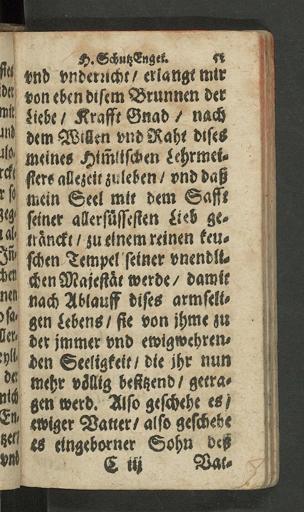 H. SchutzEngel. 51
vnd vnderricht / erlangt mir
von eben disem Brunnen der
Liebe / Krafft Gnad / nach
dem Willen vnd Raht dises
meines Him̃lischen Lehrmei-
sters allezeit zuleben / vnd daß
mein Seel mit dem Safft
seiner allersüssesten Lieb ge-
tränckt / zu einem reinen keu-
schen Tempel seiner vnendli-
chen Majestät werde / damit
nach Ablauff dises armseli-
gen Lebens / sie von ihme zu
der immer vnd ewigwehren-
den Seeligkeit / die ihr nun
mehr völlig besitzend / getra-
gen werd. Also geschehe es /
ewiger Vatter / also geschehe
es eingeborner Sohn deß
C iij Vat-